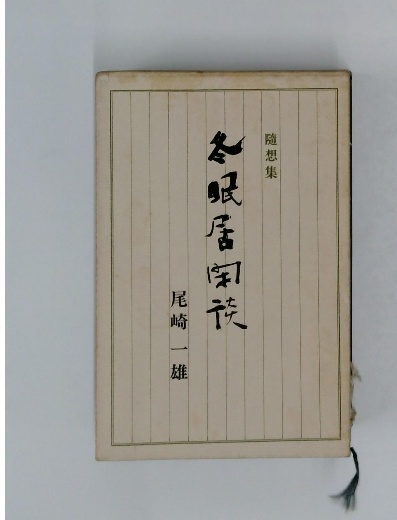 隨想集
冬眠居閑談
尾崎一雄